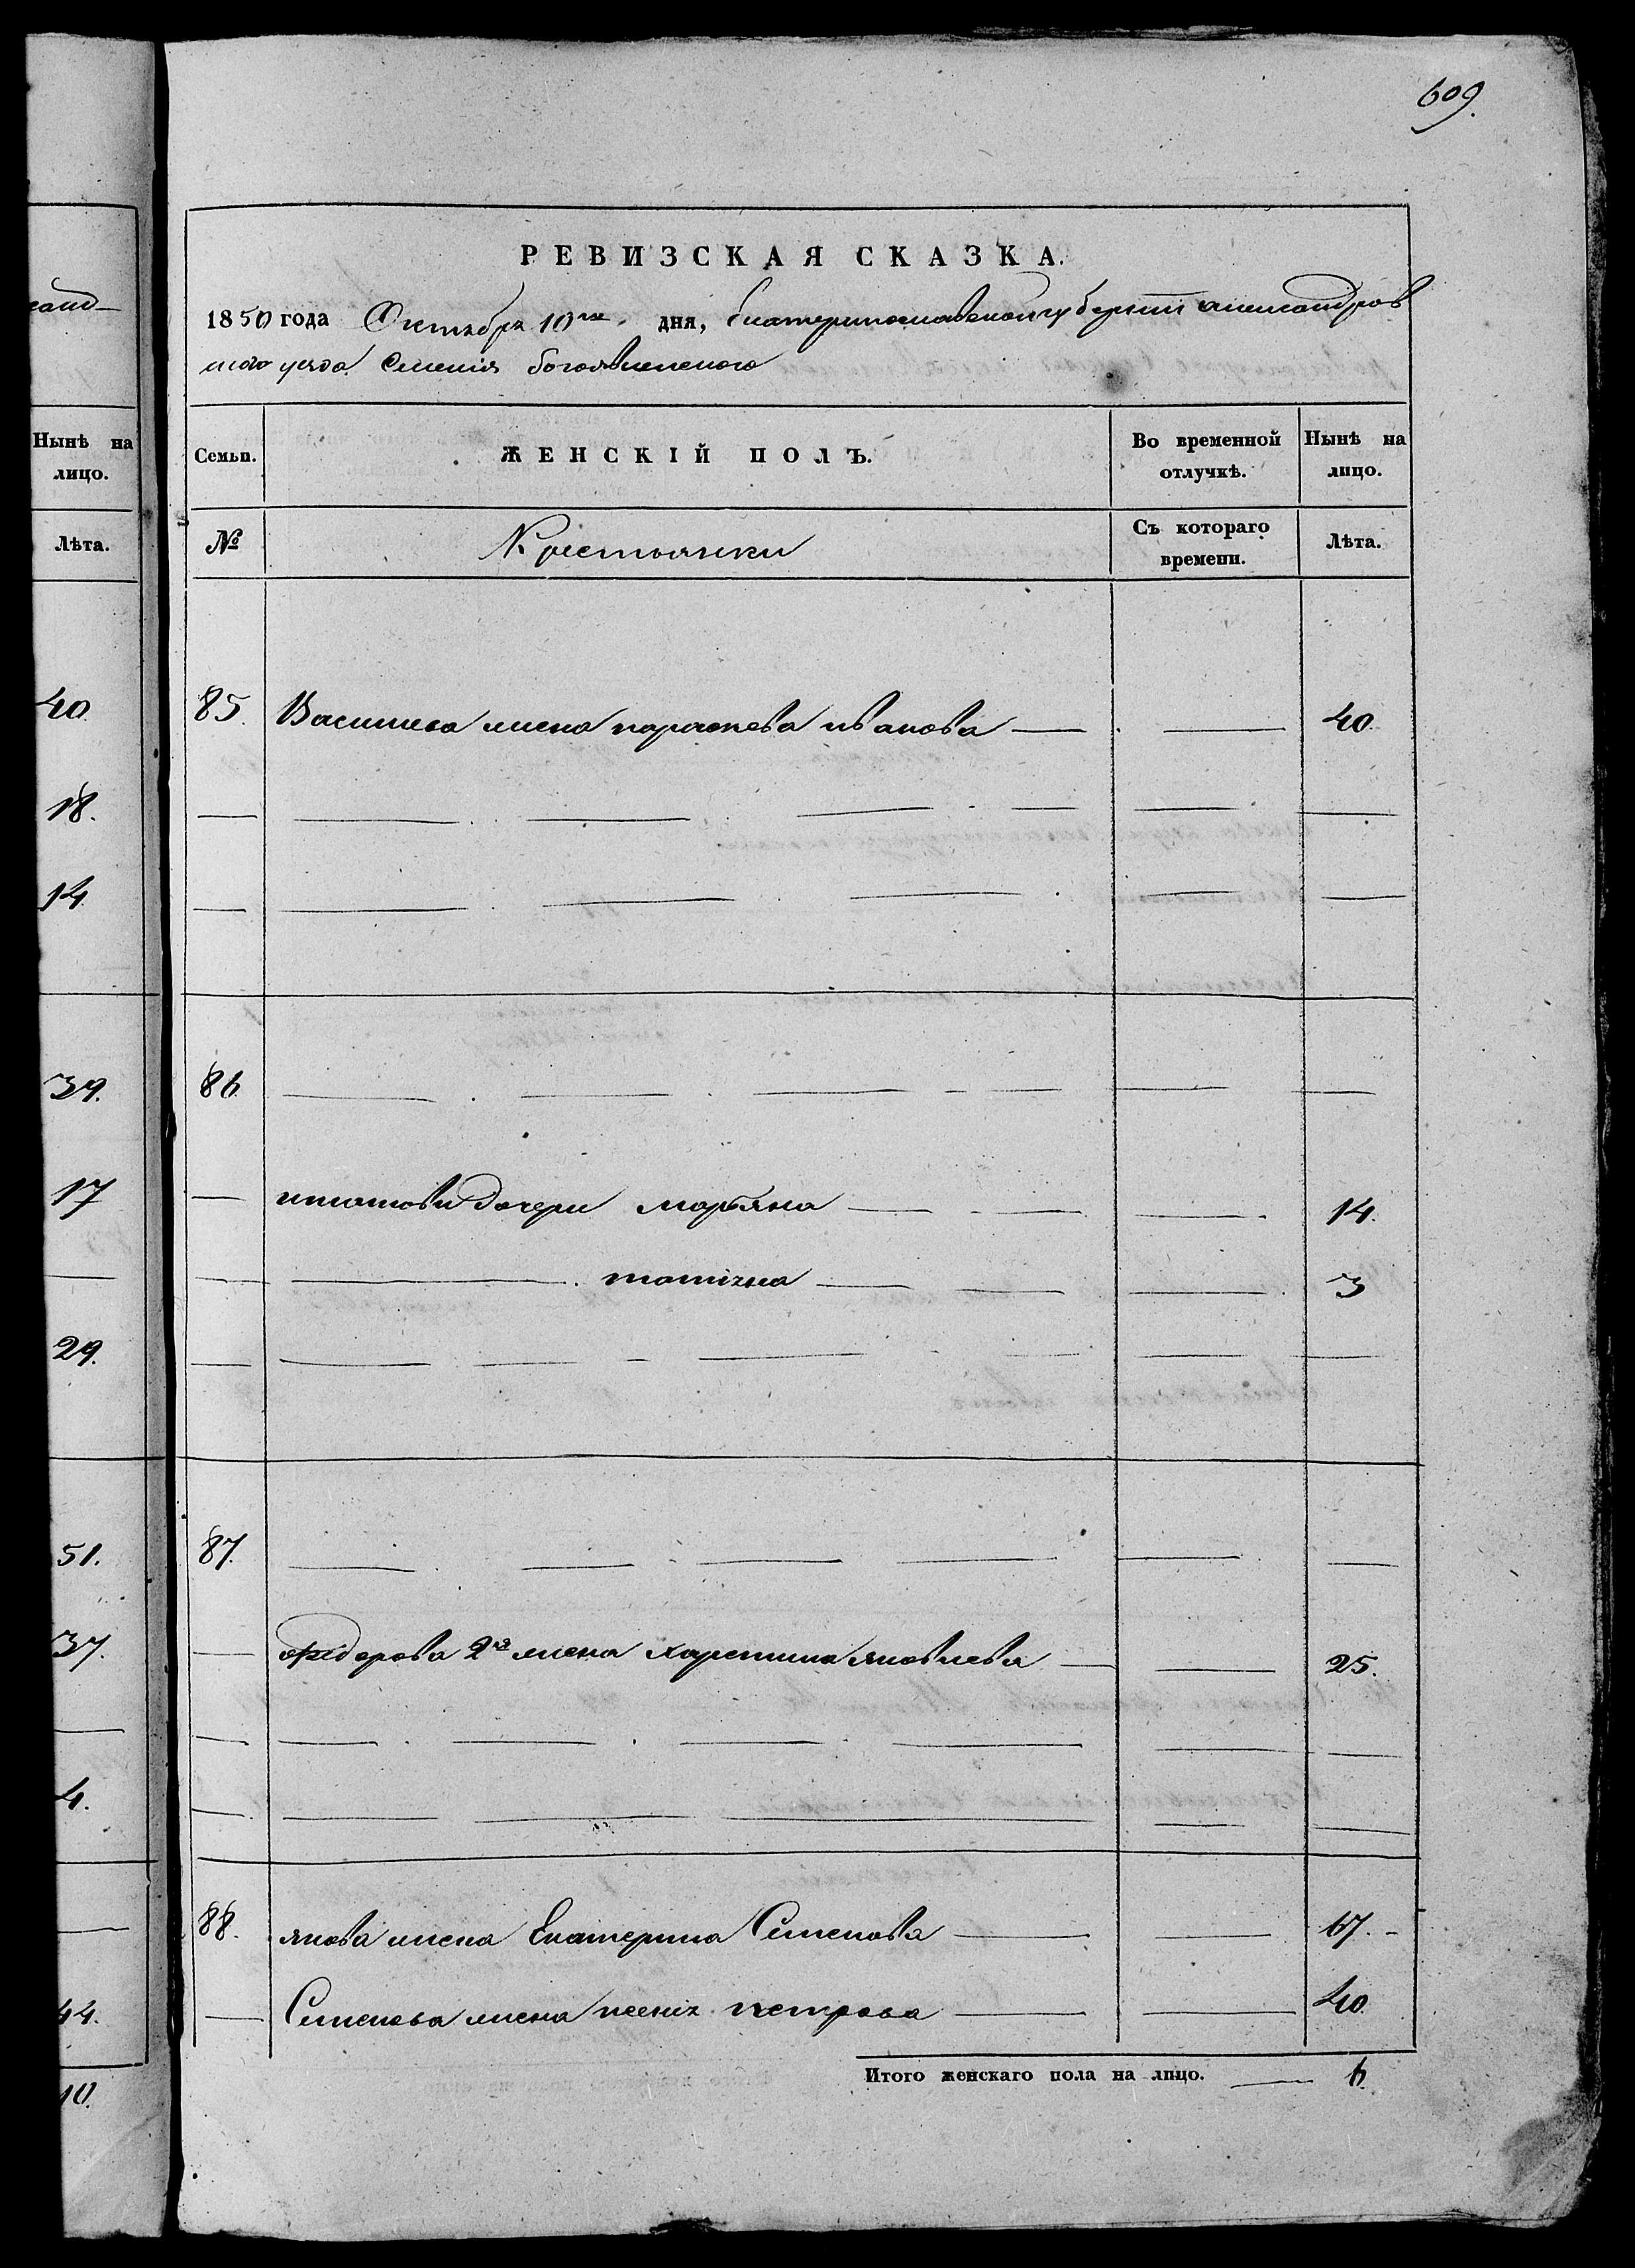 609.
РЕВИЗСКАЯ СКАЗКА.
1850 года Октября 10го дня, Екатеринославской губернии александров
ского уезда Селения богоявленского
Нынѣ на лицо.
Лѣта.
40.
18.
14
39.
17
29.
51.
37.
4.
44.
10.
Семьи. ЖЕНСКІЙ ПОЛЪ. Во временной отлучкѣ. Нынѣ на лицо.
№ Крестьянки Съ котораго времени. Лѣта.
85. Василева жена параскева иванова 40.
86
дочери марьяна 14.
татіяна 3
87.
федорова 2я жена харетина яковлева 25.
88. якова жена Екатерина Семенова 67.
Семенова жена ксенія петрова 40.
Итого женскаго пола на лицо. 6.